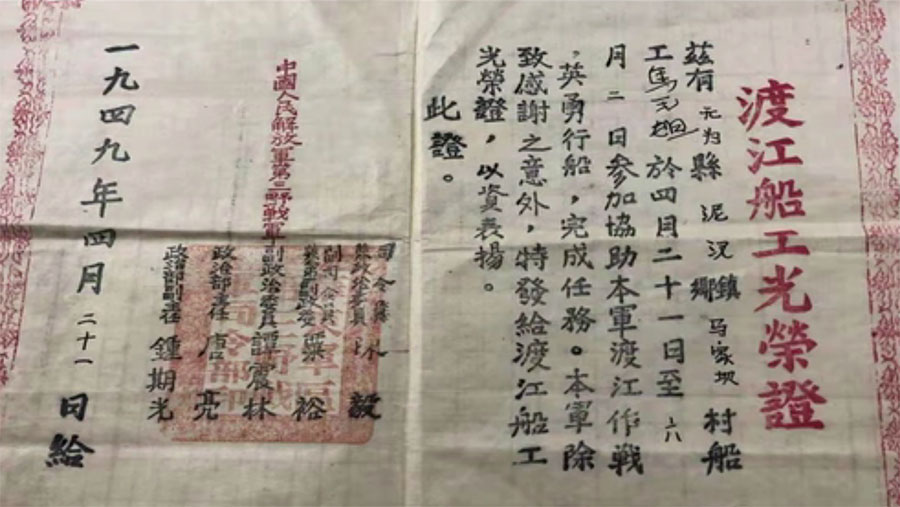 渡江船工光榮證
茲有 元为縣 泥汊鎮鄉 马家坝 村船
工馬於四月二十一日至 六
月二日參加協助本軍渡江作戰
，英勇行船，完成任務。本軍除
致感謝之意外，特發給渡江船工
光榮證，以資表揚。
此證。
中國人民解放軍第三野戰軍
司令員兼政治委員 陳毅
副司令員兼第二副政委 粟裕
副政治委員 譚震林
政治部主任 唐亮
政治部副主任 鍾期光
一九四九年四月二十一日給